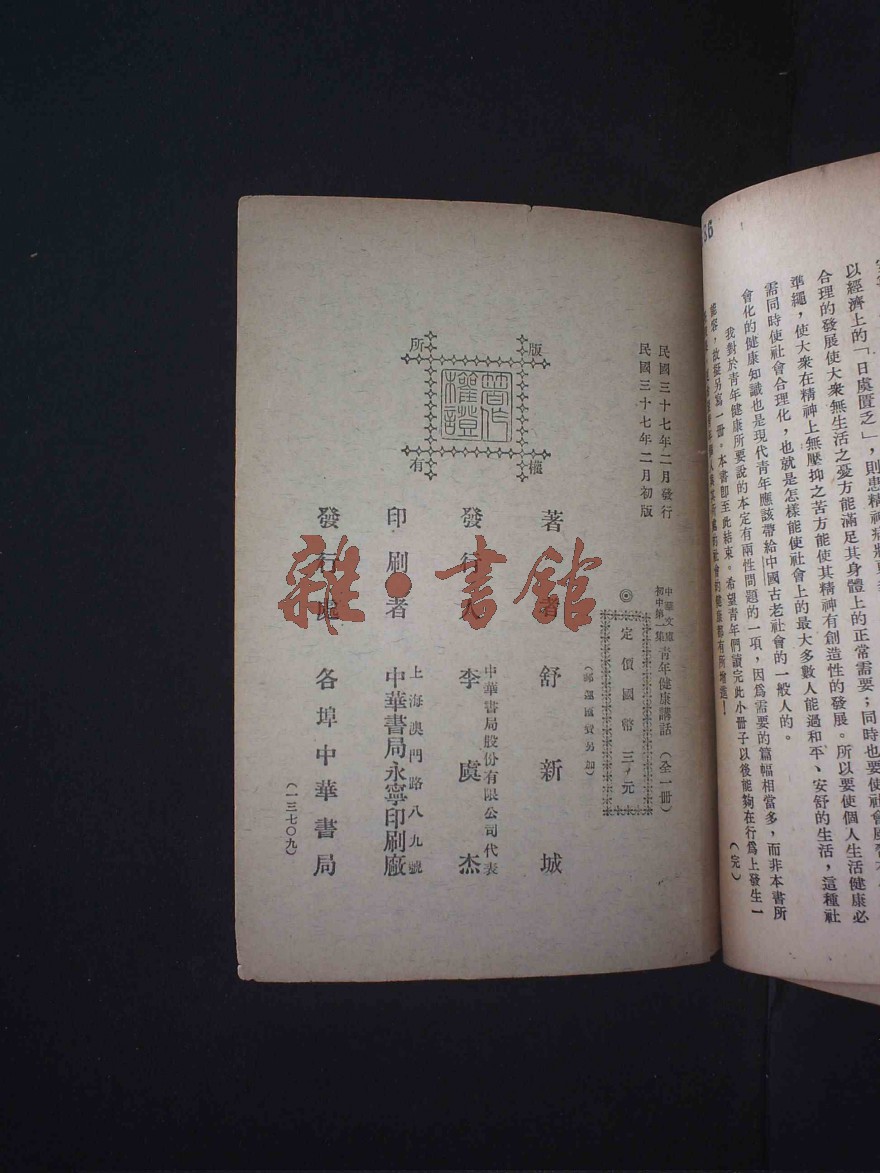 86
以經濟上的「日虞匱乏」，則患精神病
合理的發展使大衆無生活之憂方能滿足其身體上的正常需要；同時也要使社會
準繩，使大衆在精神上無壓抑之苦方能使其精神有創造性的發展。所以要使個人生活健康必
需同時使社會合理化，也就是怎樣能使社會上的最大多數人能過和平、安舒的生活，這種社
會化的健康知識也是現代青年應該帶給中國古老社會的一般人的。
我對於青年健康所要說的本定有兩性問題的一項，因爲需要的篇幅相當多，而非本書所
能容，故擬另寫一册。本書卽至此結束。希望青年們讀完此小册子以後能夠在行爲上發生一
社會的健康都有所增進！
（完）
民國三十七年二月發行
民國三十七年二月初版
中華文庫
初中第一集
青年健康講話
（全一册）
◎定價國幣三元
（郵運匯費另加）
版權所有
著者
舒新城
發行人
中華書局股份有限公司代表
李虞杰
印刷者
上海澳門路八九號
中華書局永寧印刷廠
發行處
各埠中華書局
（一三七〇九）
雜·書館